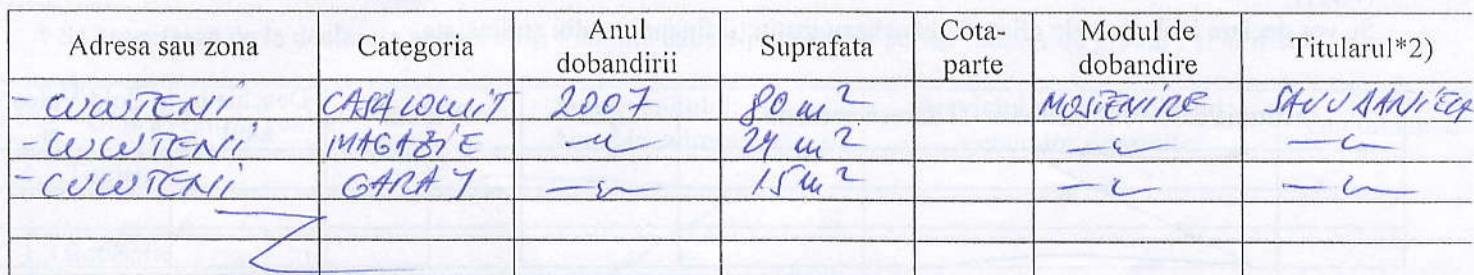 Adresa sau zona Categoria Anul dobandirii Suprafata Cota-parte Modul de dobandire Titularul*2)
CUCUTENI CASA LOCUIT 2007 80 m² MOSTENIRE SAVU DANIELA
- CUCUTENI MAGAZIE —〃— 24 m² —〃— —〃—
- CUCUTENI GARAJ —〃— 15 m² —〃— —〃—